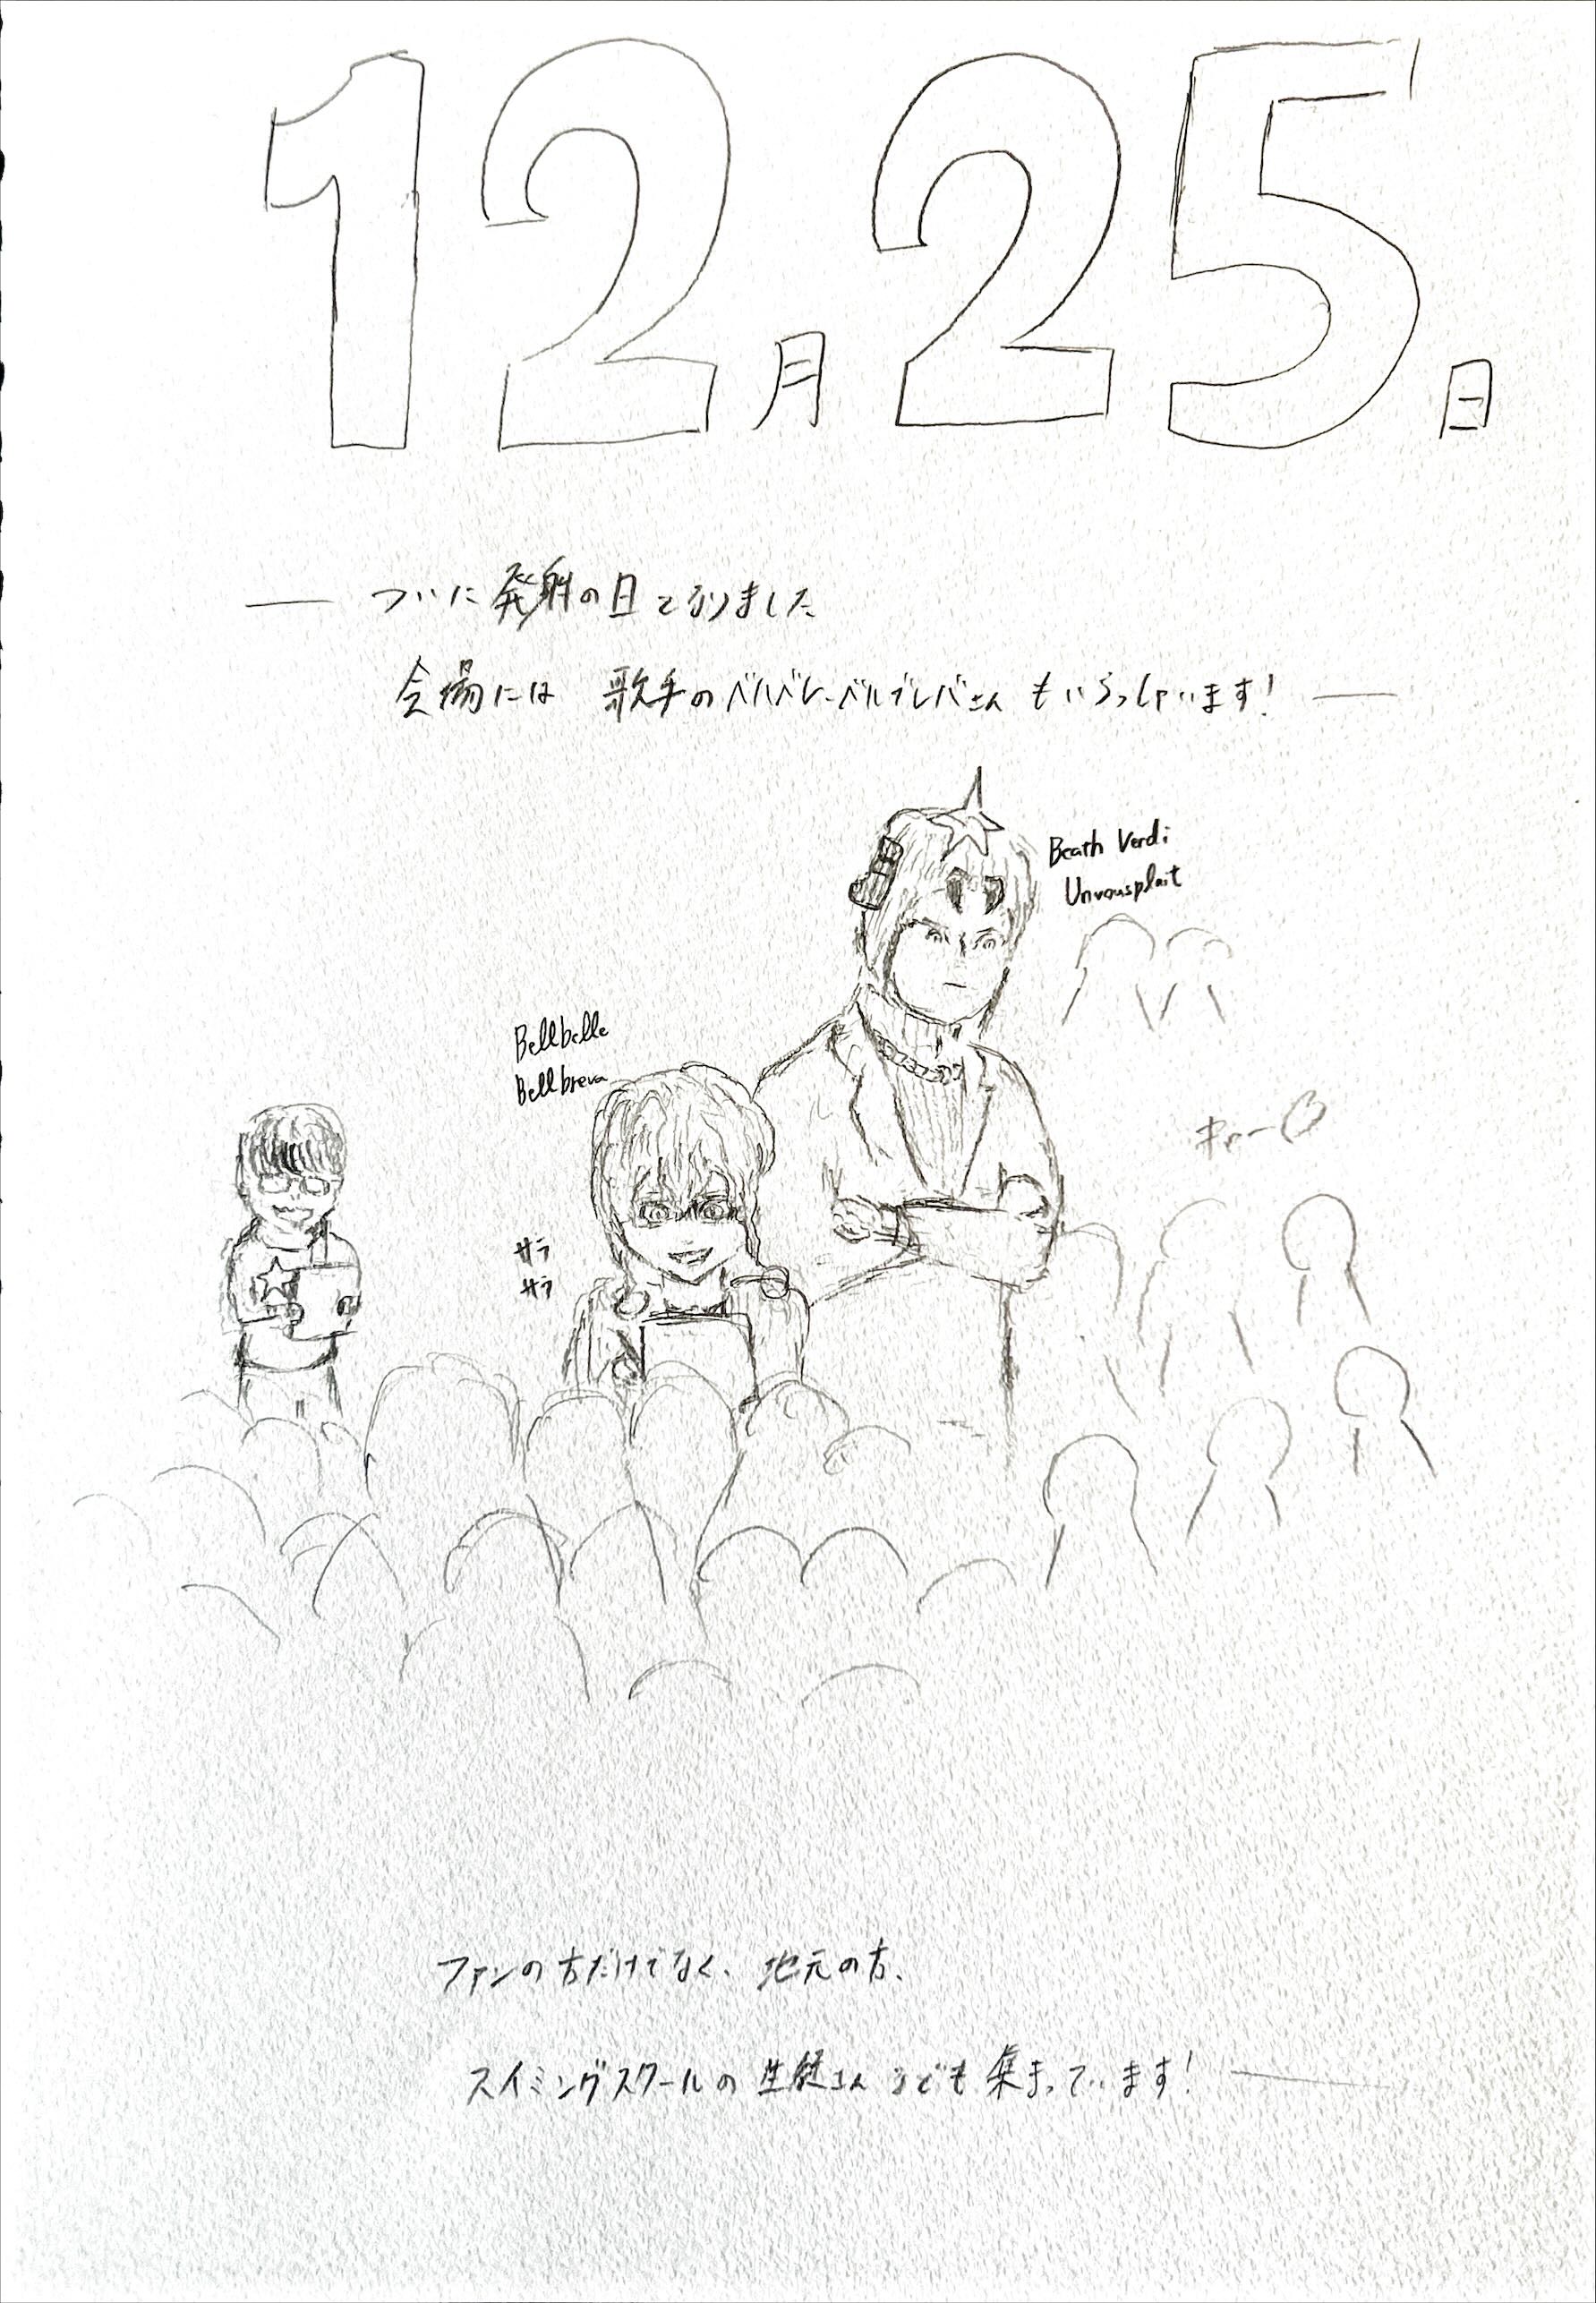 12月25日
― ついに発射の日となりました
会場には 歌手のベルベレ・ベルブレバさん もいらっしゃいます! ―
Beath Verdi
Unvousplait
Bellbelle
Bellbreva
キャー♡
サラ
サラ
ファンの方だけでなく、地元の方、
スイミングスクールの 生徒さん なども 集まっています! ―